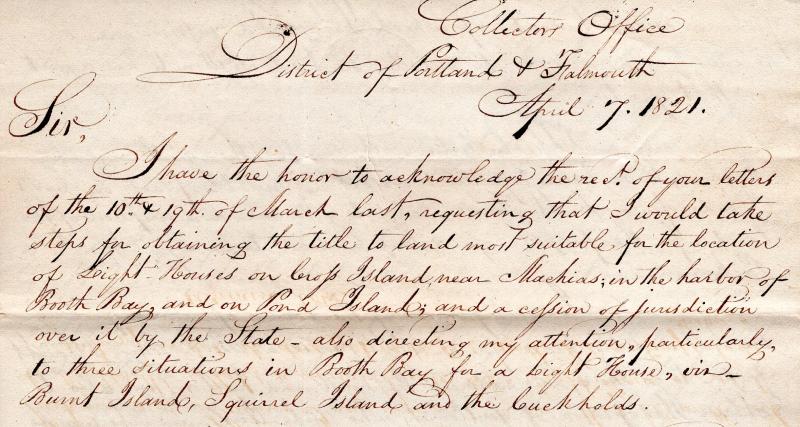 Collectors Office
District of Portland & Falmouth
April 7. 1821.
Sir,
I have the honor to acknowledge the rect. of your letters
of the 10th. & 19th. of March last, requesting that I would take
steps for obtaining the title to land most suitable for the location
of Light-Houses on Cross Island, near Machias; in the harbor of
Booth Bay, and on Pond Island; and a cession of jurisdiction
over it by the State - also directing my attention, particularly,
to three situations in Booth Bay for a Light House, viz -
Burnt Island, Squirrel Island and the Cuckholds.